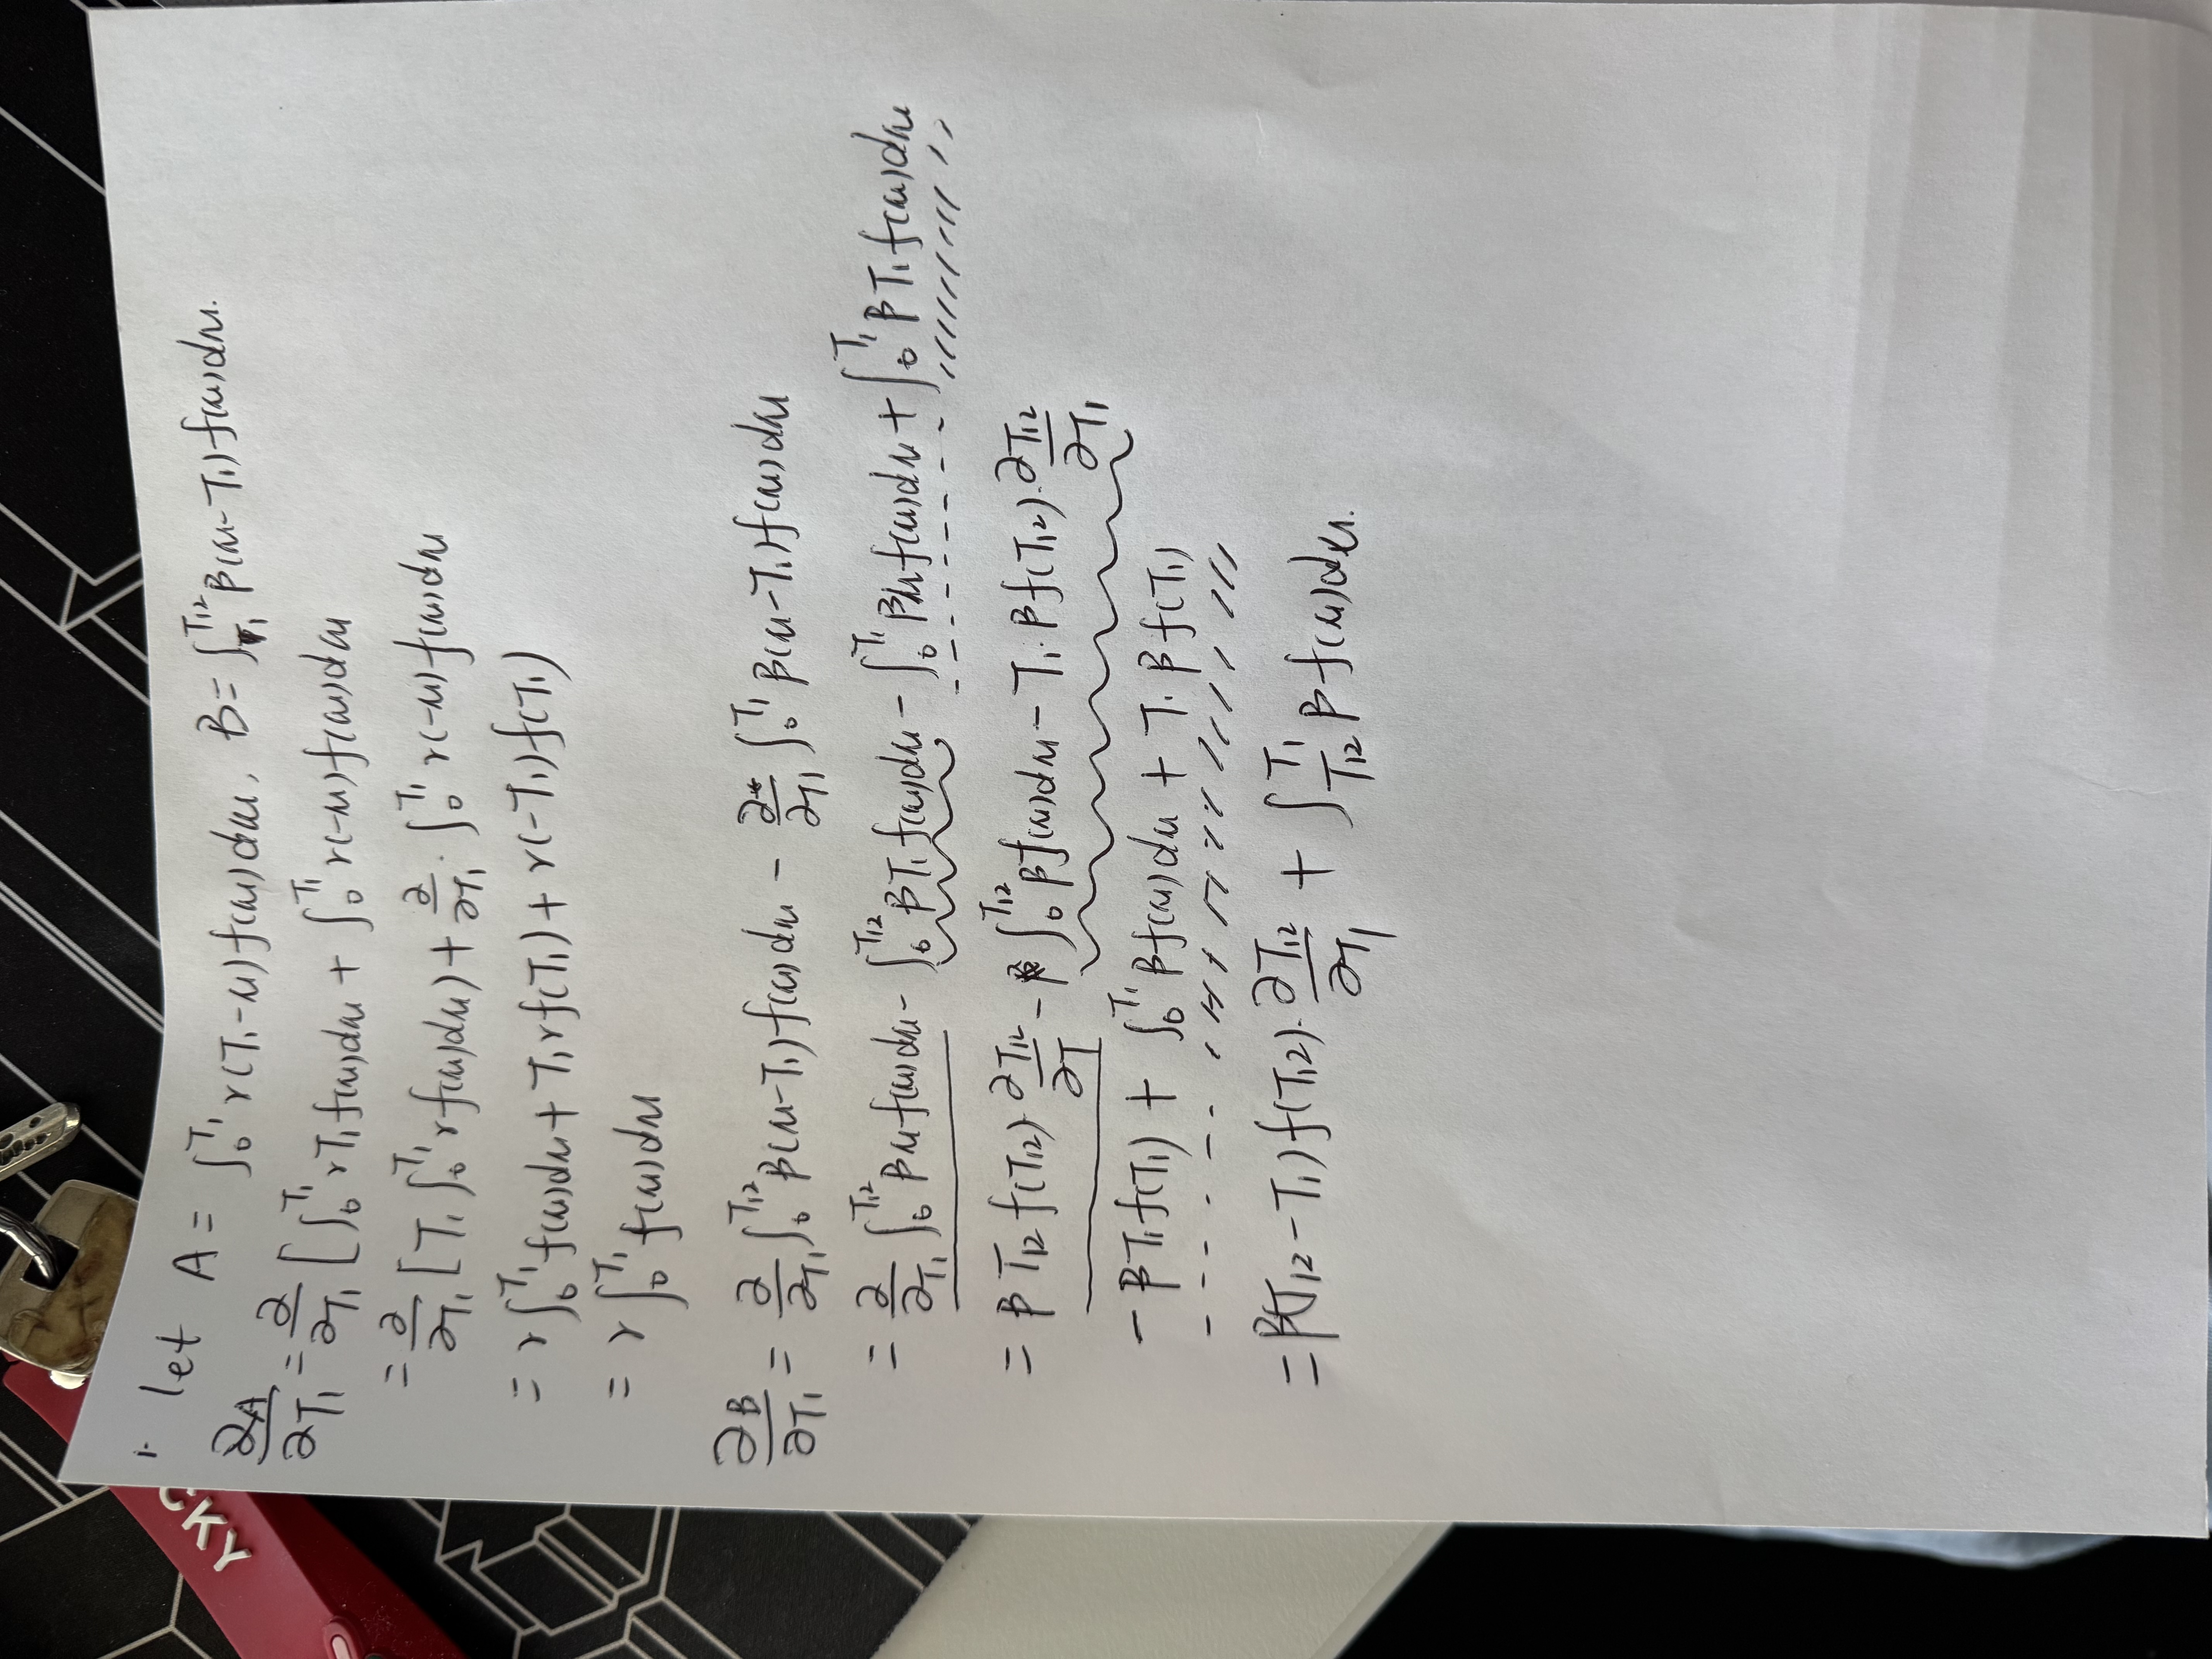 1. let A = ∫₀^{T₁} r(T₁-u)f(u)du, B = ∫_{T₁}^{T₁₂} β(u-T₁)f(u)du.
∂A/∂T₁ = ∂/∂T₁ [∫₀^{T₁} rT₁f(u)du + ∫₀^{T₁} r(-u)f(u)du
= ∂/∂T₁ [T₁ ∫₀^{T₁} rf(u)du) + ∂/∂T₁ · ∫₀^{T₁} r(-u)f(u)du
= r∫₀^{T₁} f(u)du + T₁rf(T₁) + r(-T₁)f(T₁)
= r∫₀^{T₁} f(u)du
∂B/∂T₁ = ∂/∂T₁ ∫₀^{T₁₂} β(u-T₁)f(u)du - ∂/∂T₁ ∫₀^{T₁} β(u-T₁)f(u)du
= ∂/∂T₁ ∫₀^{T₁₂} βuf(u)du - ∫₀^{T₁₂} βT₁f(u)du - ∫₀^{T₁} βuf(u)du + ∫₀^{T₁} βT₁f(u)du
= βT₁₂f(T₁₂) ∂T₁₂/∂T - ∫₀^{T₁₂} βf(u)du - T₁·βf(T₁₂)·∂T₁₂/∂T₁
- βT₁f(T₁) + ∫₀^{T₁} βf(u)du + T₁βf(T₁)
= β(T₁₂-T₁)f(T₁₂)·∂T₁₂/∂T₁ + ∫_{T₁₂}^{T₁} βf(u)du.
CKY